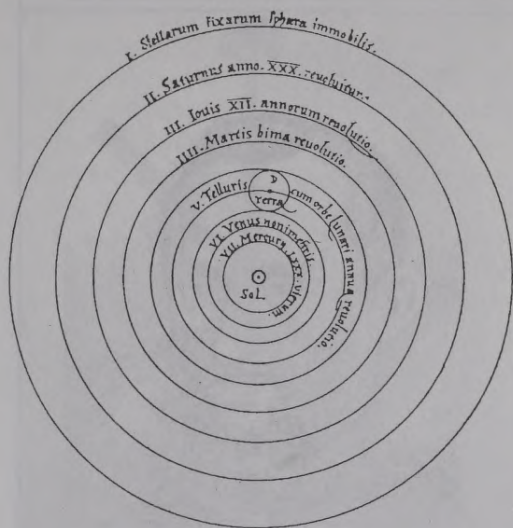 I. Stellarum Fixarum sphæra immobilis.
II. Saturnus anno. XXX. reuoluitur.
III. Iouis XII. annorum reuolutio.
IIII. Martis bima reuolutio.
V. Telluris cum orbe lunari annua reuolutio.
Terra
VI. Venus nonimestris.
VII. Mercurij LXXX. dierum.
Sol.